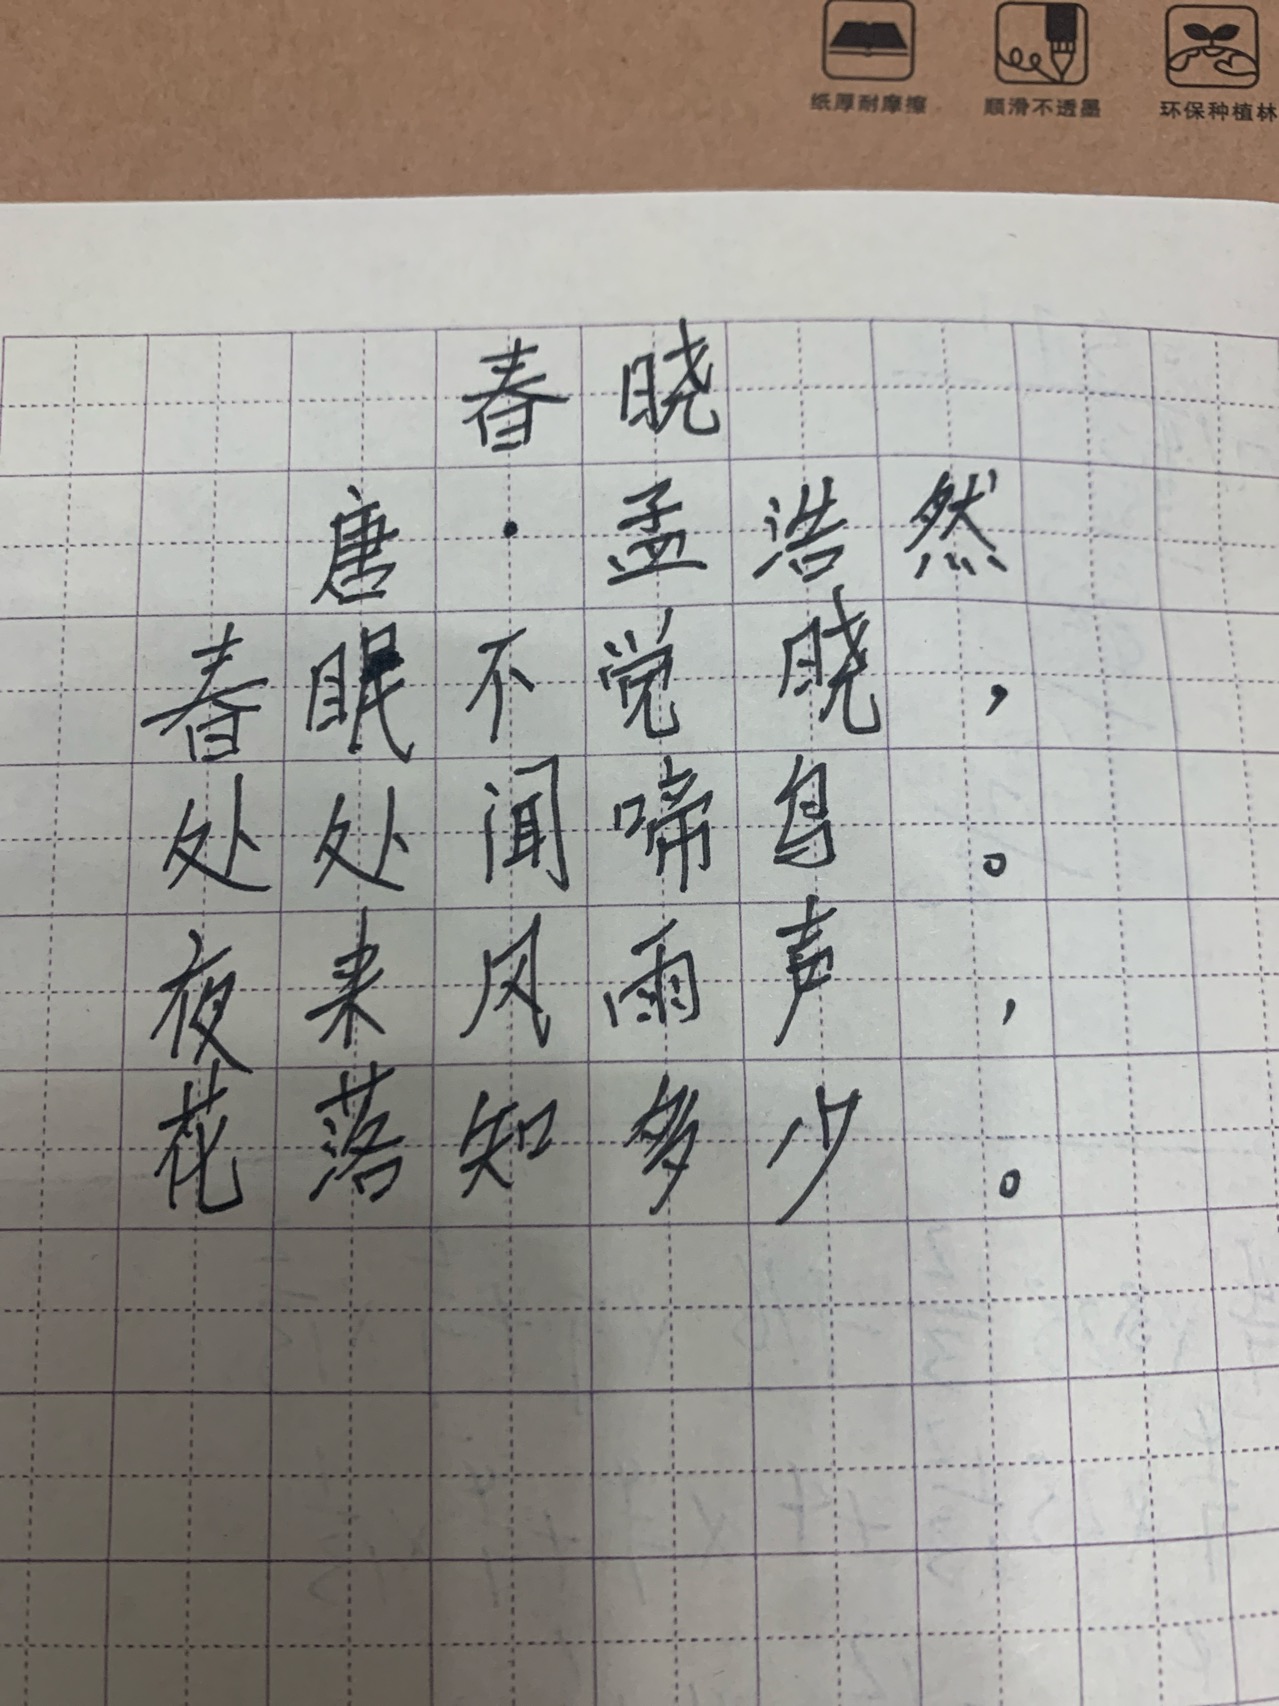 纸厚耐摩擦 顺滑不透墨 环保种植林
春晓
唐·孟浩然
春眠不觉晓，
处处闻啼鸟。
夜来风雨声，
花落知多少。